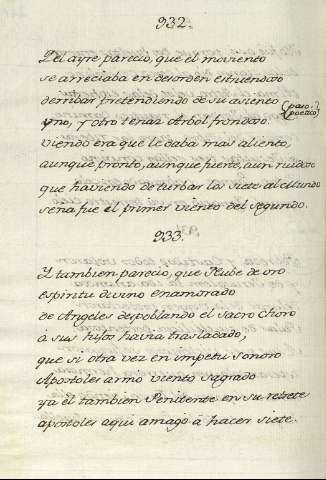 932.
Del ayre pareciò, que el movento
se arreciaba en desorden estruendoso
derribar pretendiendo de su asiento
yno, y otro tenaz Arbol frondoso.
(paro.
poetico)
viendo era que le daba mas aliento,
aunque pronto, aunque fuerte, aun ruidoso
que haviendo de turbar los siete al Mundo
seña fue el primer viento del segundo.
933.
Y tambien pareciò, que Nube de oro
espiritu divino enamorado
de Angeles despoblando el Sacro Choro
à sus hijos havia trasladado,
que si otra vez en impetu sonoro
Apostoles armò viento sagrado
ya el tambien Penitente en su retrete
apostoles aqui amagò à hacer siete.